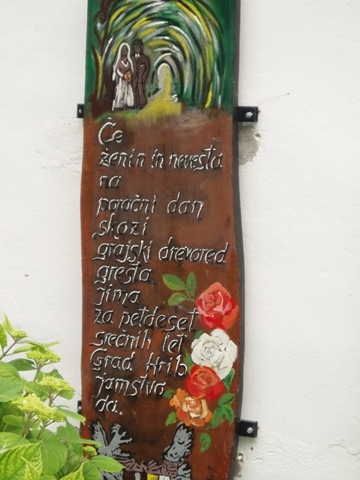 Če
ženin in nevesta
na
poročni dan
skozi
grajski drevored
gresta,
jima
za petdeset
srečnih let
Grad Hrib
jamstvo
da.